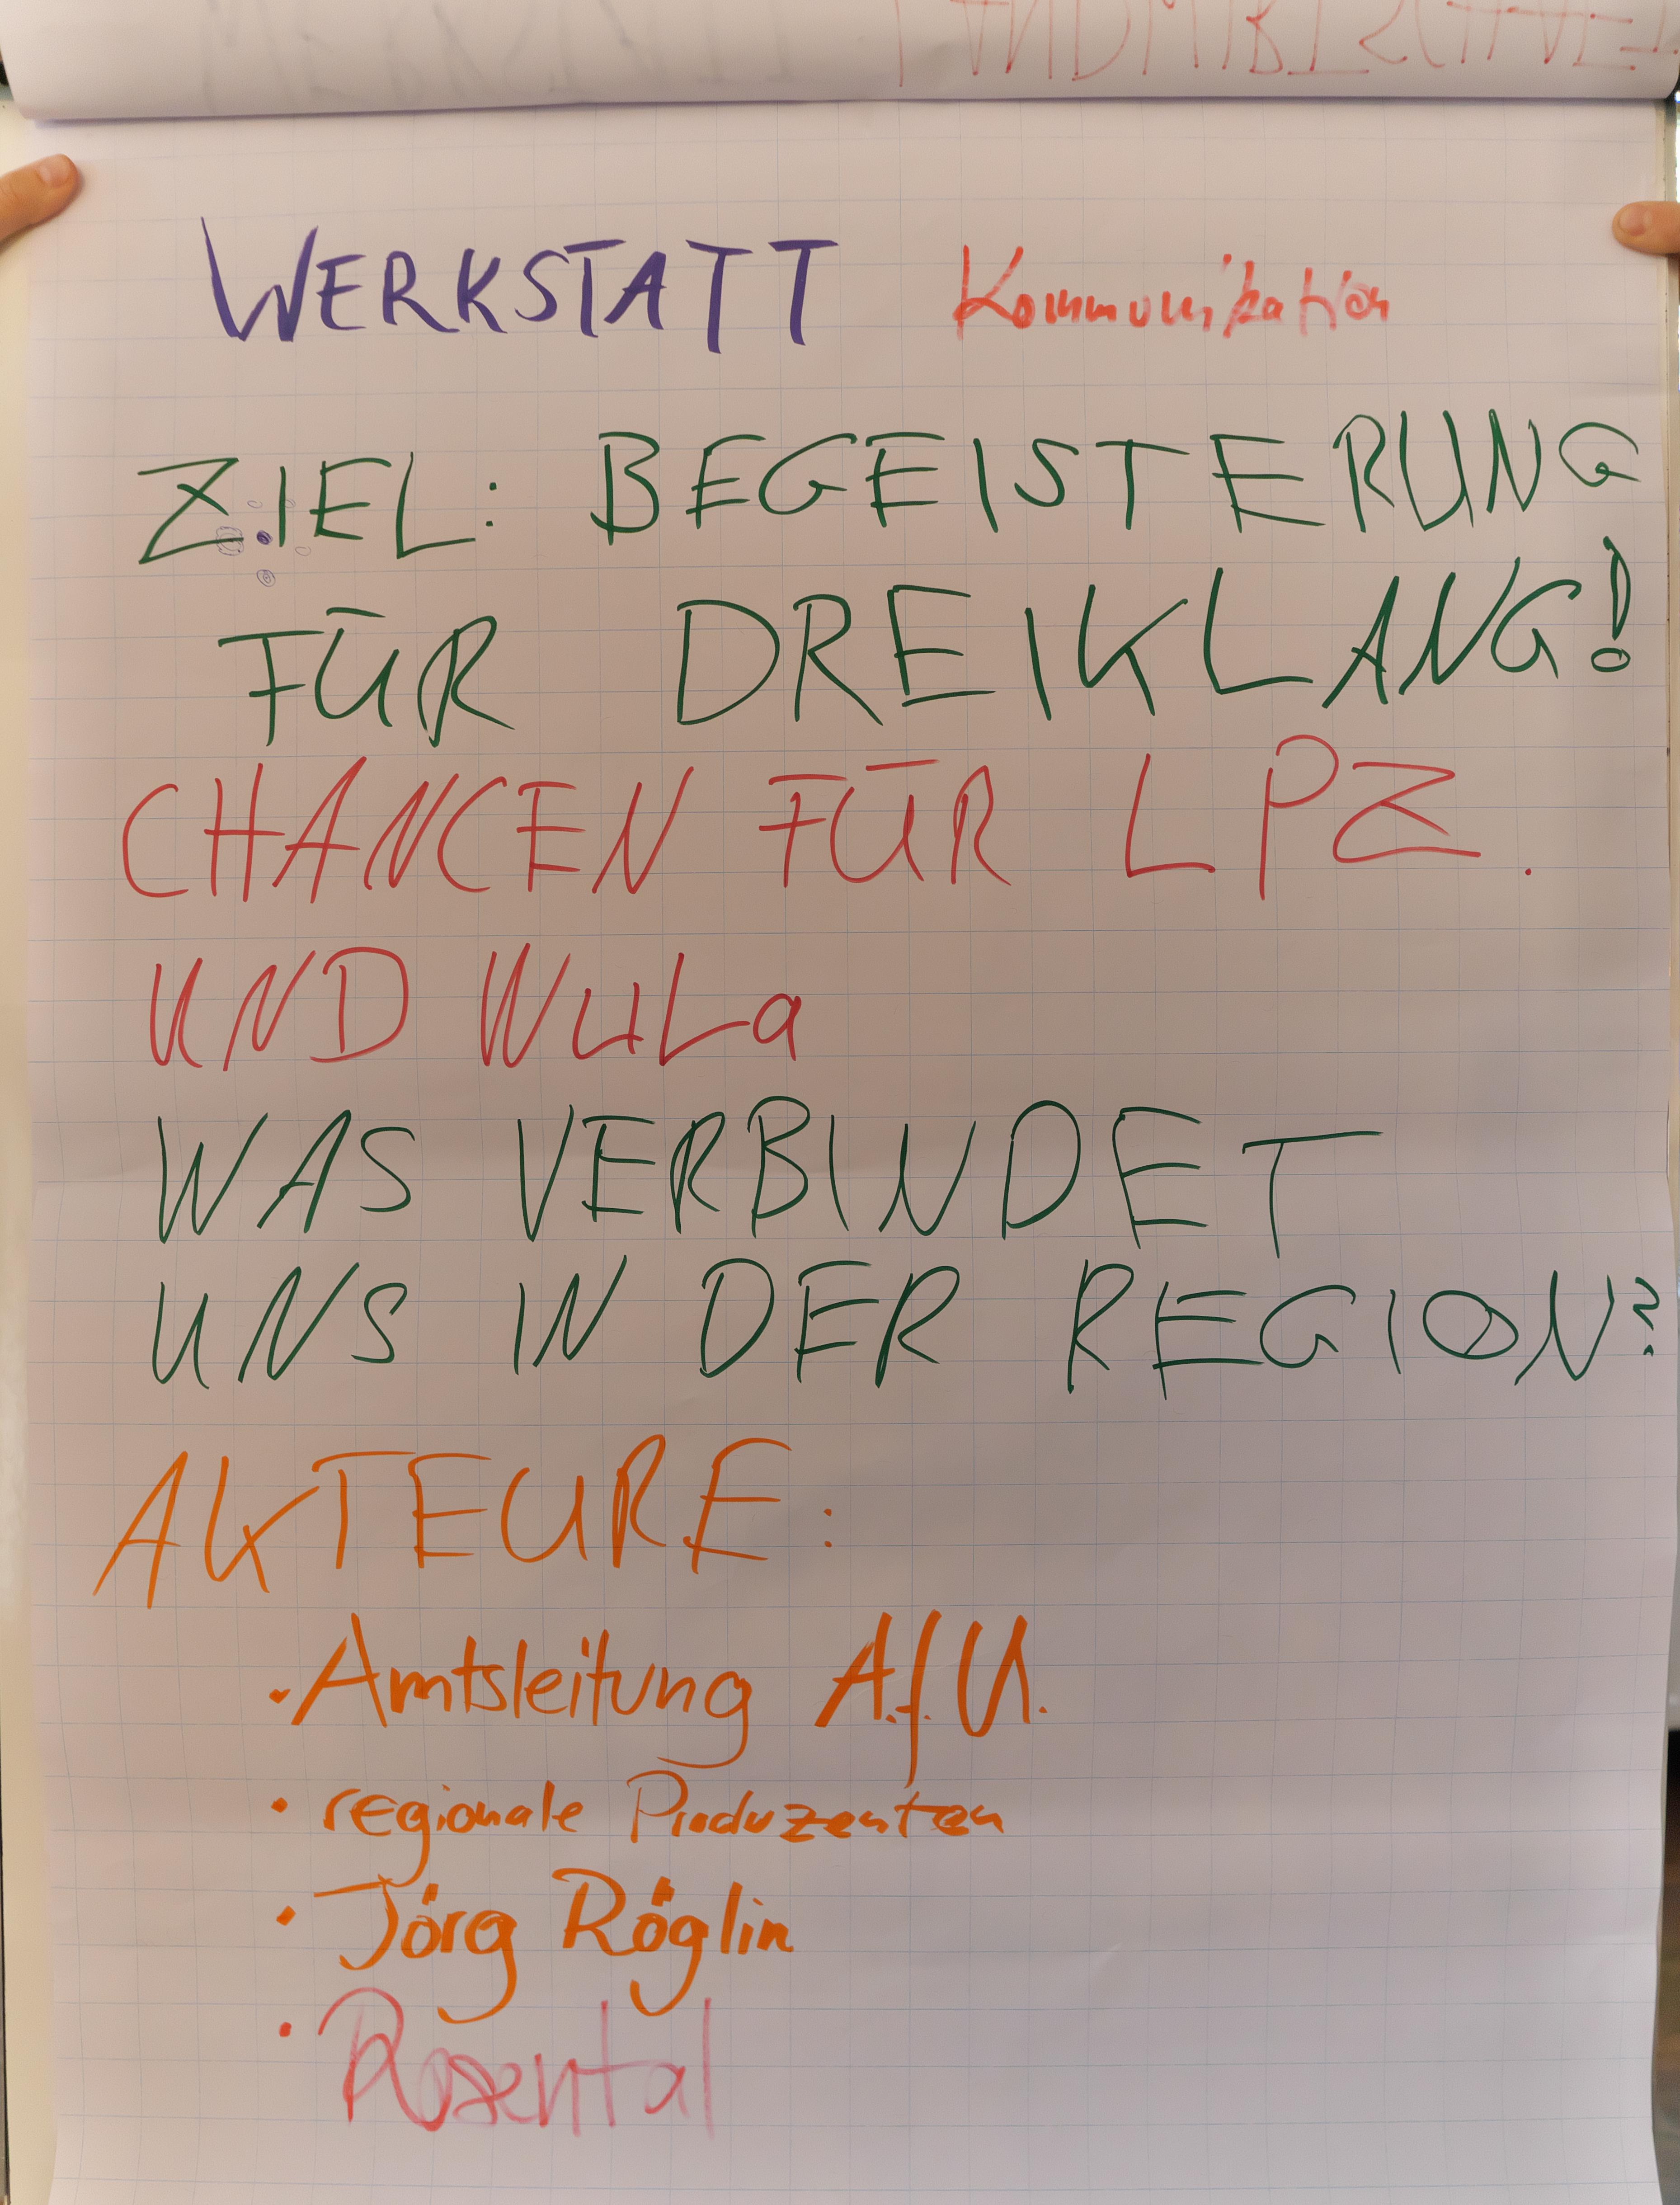 WERKSTATT Kommunikation
ZIEL: BEGEISTERUNG
FÜR DREIKLANG!
CHANCEN FÜR LPZ.
UND WuLa
WAS VERBINDET
UNS IN DER REGION?
AKTEURE:
· Amtsleitung A.f.U.
· regionale Produzenten
· Jörg Röglin
· Rosental